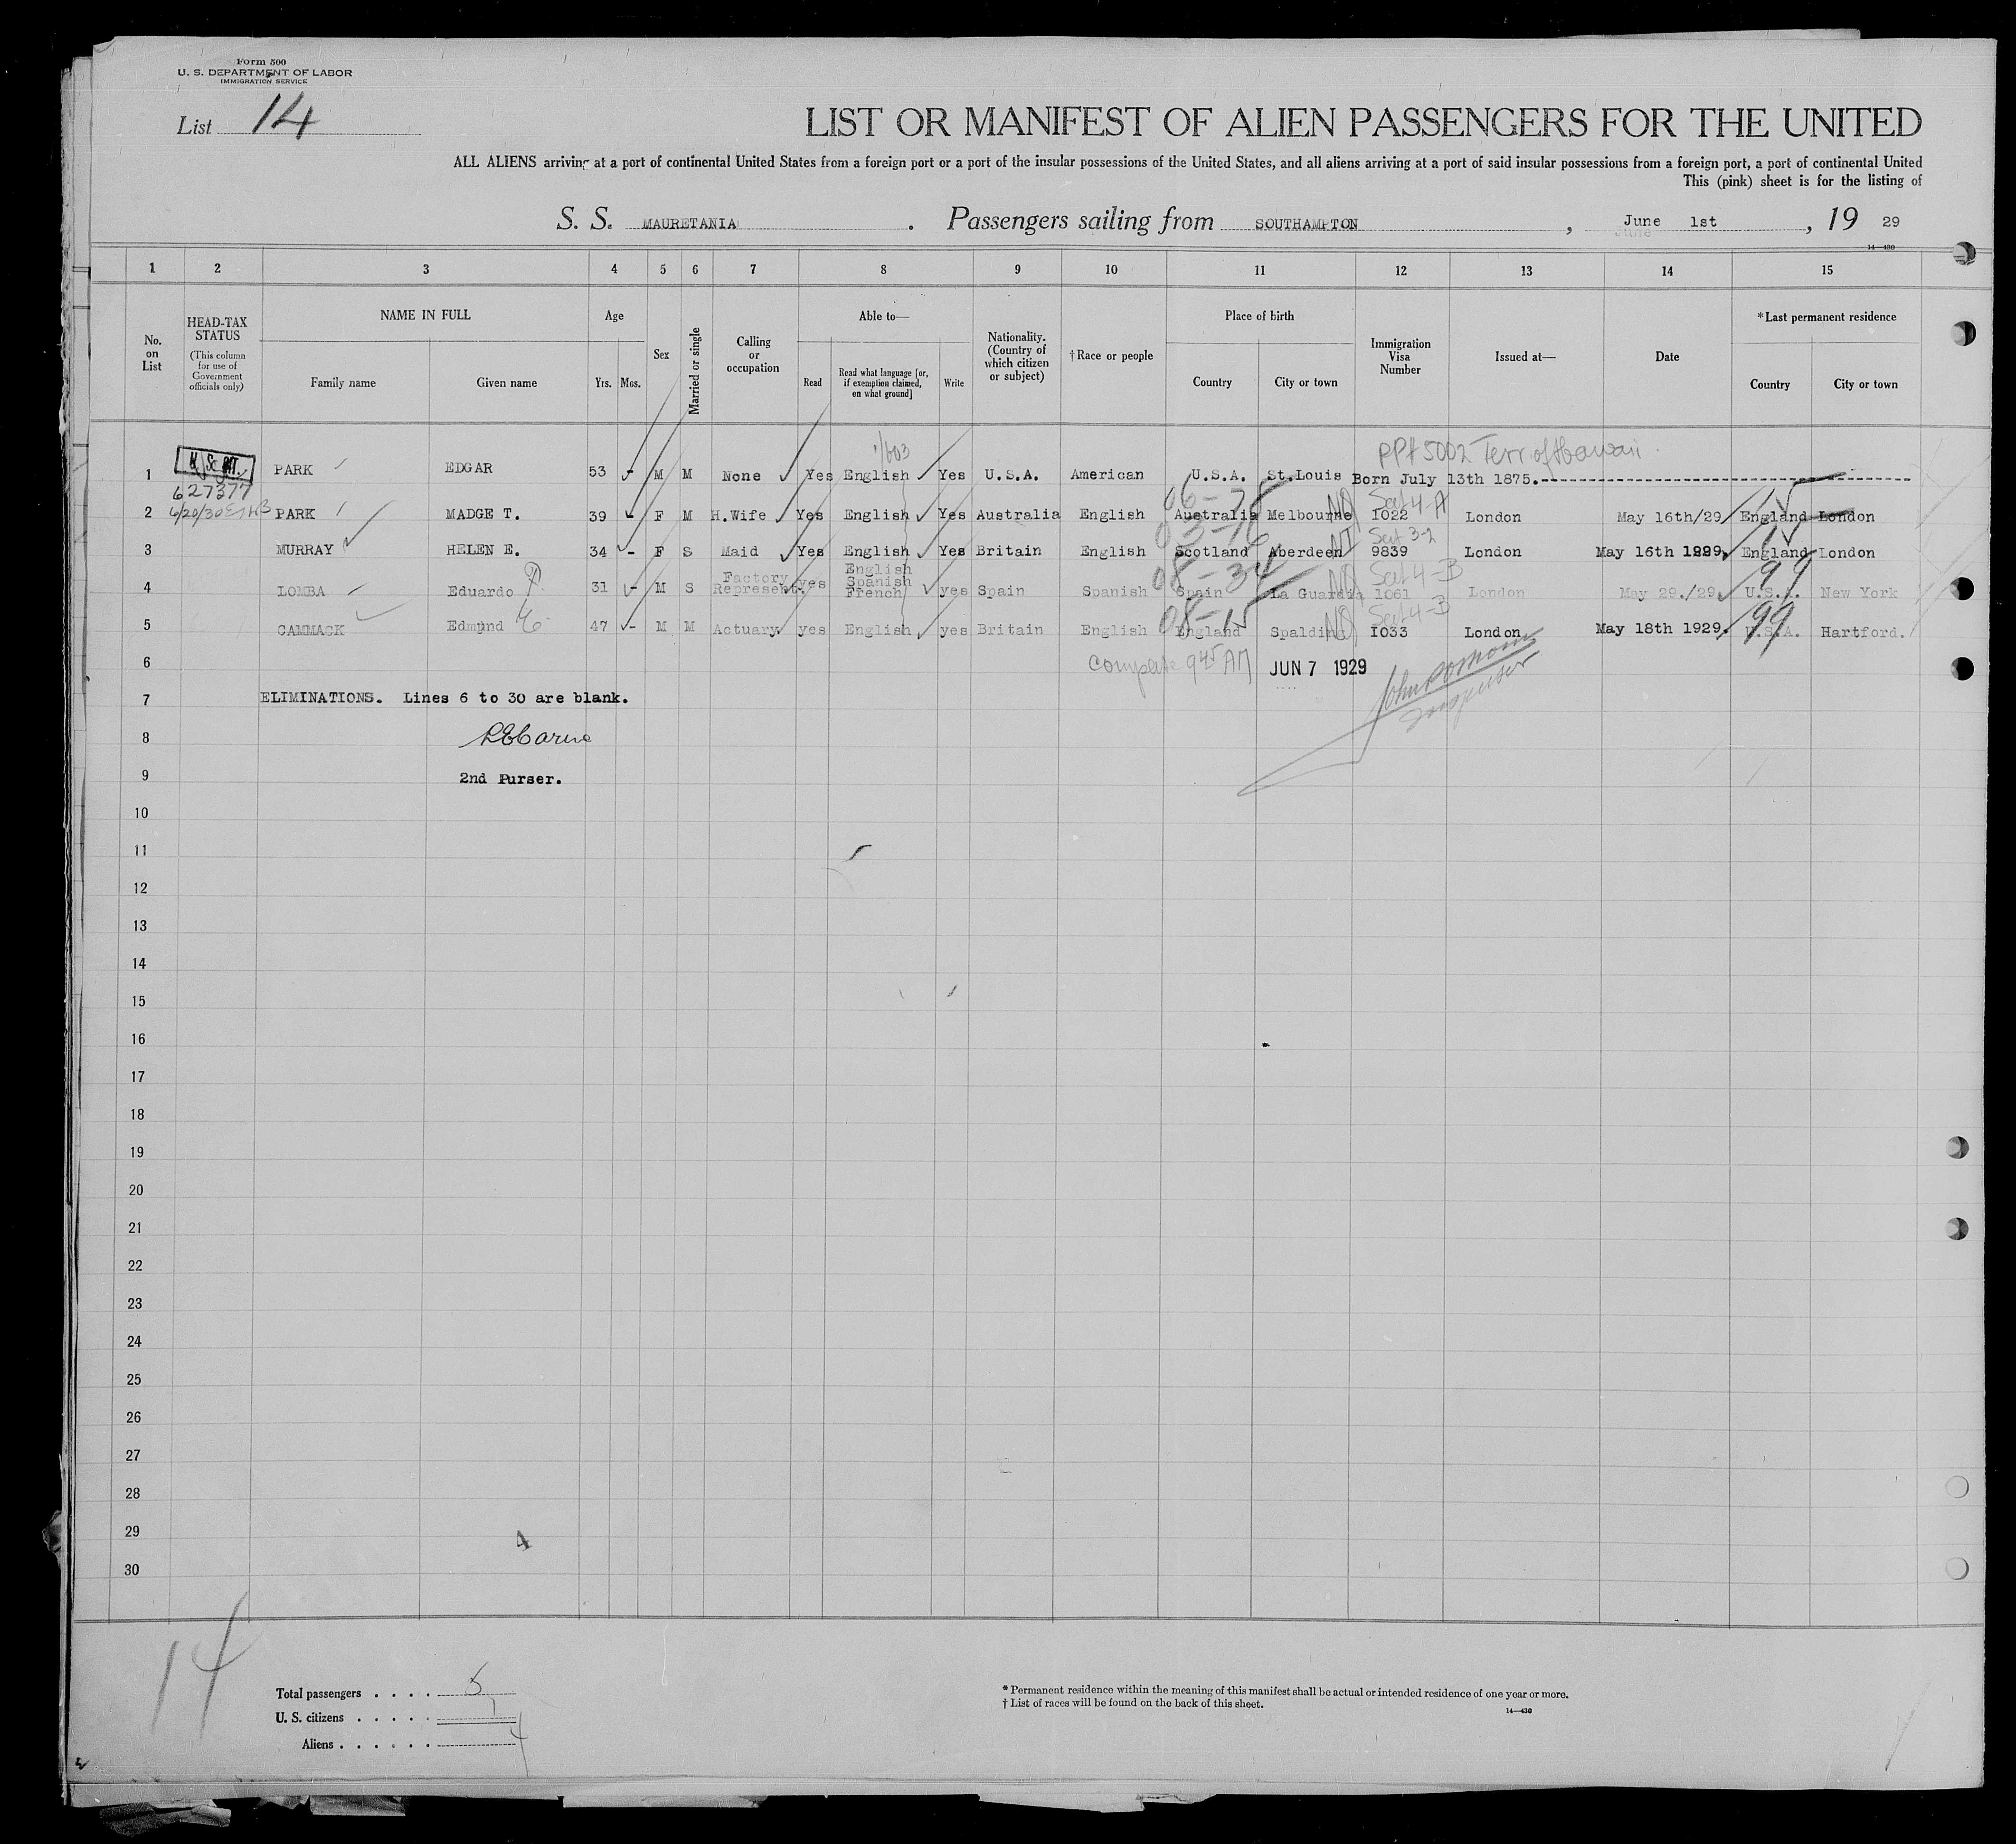 Form 500
U. S. DEPARTMENT OF LABOR
IMMIGRATION SERVICE
List 14
LIST OR MANIFEST OF ALIEN PASSENGERS FOR THE UNITED
ALL ALIENS arriving at a port of continental United States from a foreign port or a port of the insular possessions of the United States, and all aliens arriving at a port of said insular possessions from a foreign port, a port of continental United
This (pink) sheet is for the listing of
S. S. MAURETANIA . Passengers sailing from SOUTHAMPTON , June 1st , 19 29
14—430
1 2 3 4 5 6 7 8 9 10 11 12 13 14 15
No. on List
HEAD-TAX STATUS (This column for use of Government officials only)
NAME IN FULL
Family name Given name
Age
Yrs. Mos.
Sex
Married or single
Calling or occupation
Able to—
Read Read what language [or, if exemption claimed, on what ground] Write
Nationality. (Country of which citizen or subject)
†Race or people
Place of birth
Country City or town
Immigration Visa Number
Issued at—
Date
*Last permanent residence
Country City or town
1/603
PPt 5002 Terr of Hawaii.
1 PARK EDGAR 53 - M M None Yes English Yes U.S.A. American U.S.A. St.Louis Born July 13th 1875.
627377
6/20/30
06-75 NQ Sec 4-A 15
2 PARK MADGE T. 39 - F M H.Wife Yes English Yes Australia English Australia Melbourne 1022 London May 16th/29 England London
03-16 Sect 3-2 15
3 MURRAY HELEN E. 34 - F S Maid Yes English Yes Britain English Scotland Aberdeen 9839 London May 16th 1929. England London
08-34 NQ Sec 4-B 99
4 LOMBA Eduardo 31 - M S Factory Represent. yes English Spanish French yes Spain Spanish Spain La Guardia 1061 London May 29./29. U.S.A. New York
08-15 NQ Sec 4-B 99
5 CAMMACK Edmund E. 47 - M M Actuary yes English yes Britain English England Spalding 1033 London May 18th 1929. U.S.A. Hartford.
6 Complete 9 45 AM JUN 7 1929
Inspector
7 ELIMINATIONS. Lines 6 to 30 are blank.
8
9 2nd Purser.
10
11
12
13
14
15
16
17
18
19
20
21
22
23
24
25
26
27
28
29
4
30
14
Total passengers . . . . 5
U. S. citizens . . . . . 1
Aliens . . . . . . 4
* Permanent residence within the meaning of this manifest shall be actual or intended residence of one year or more.
† List of races will be found on the back of this sheet.
14—430